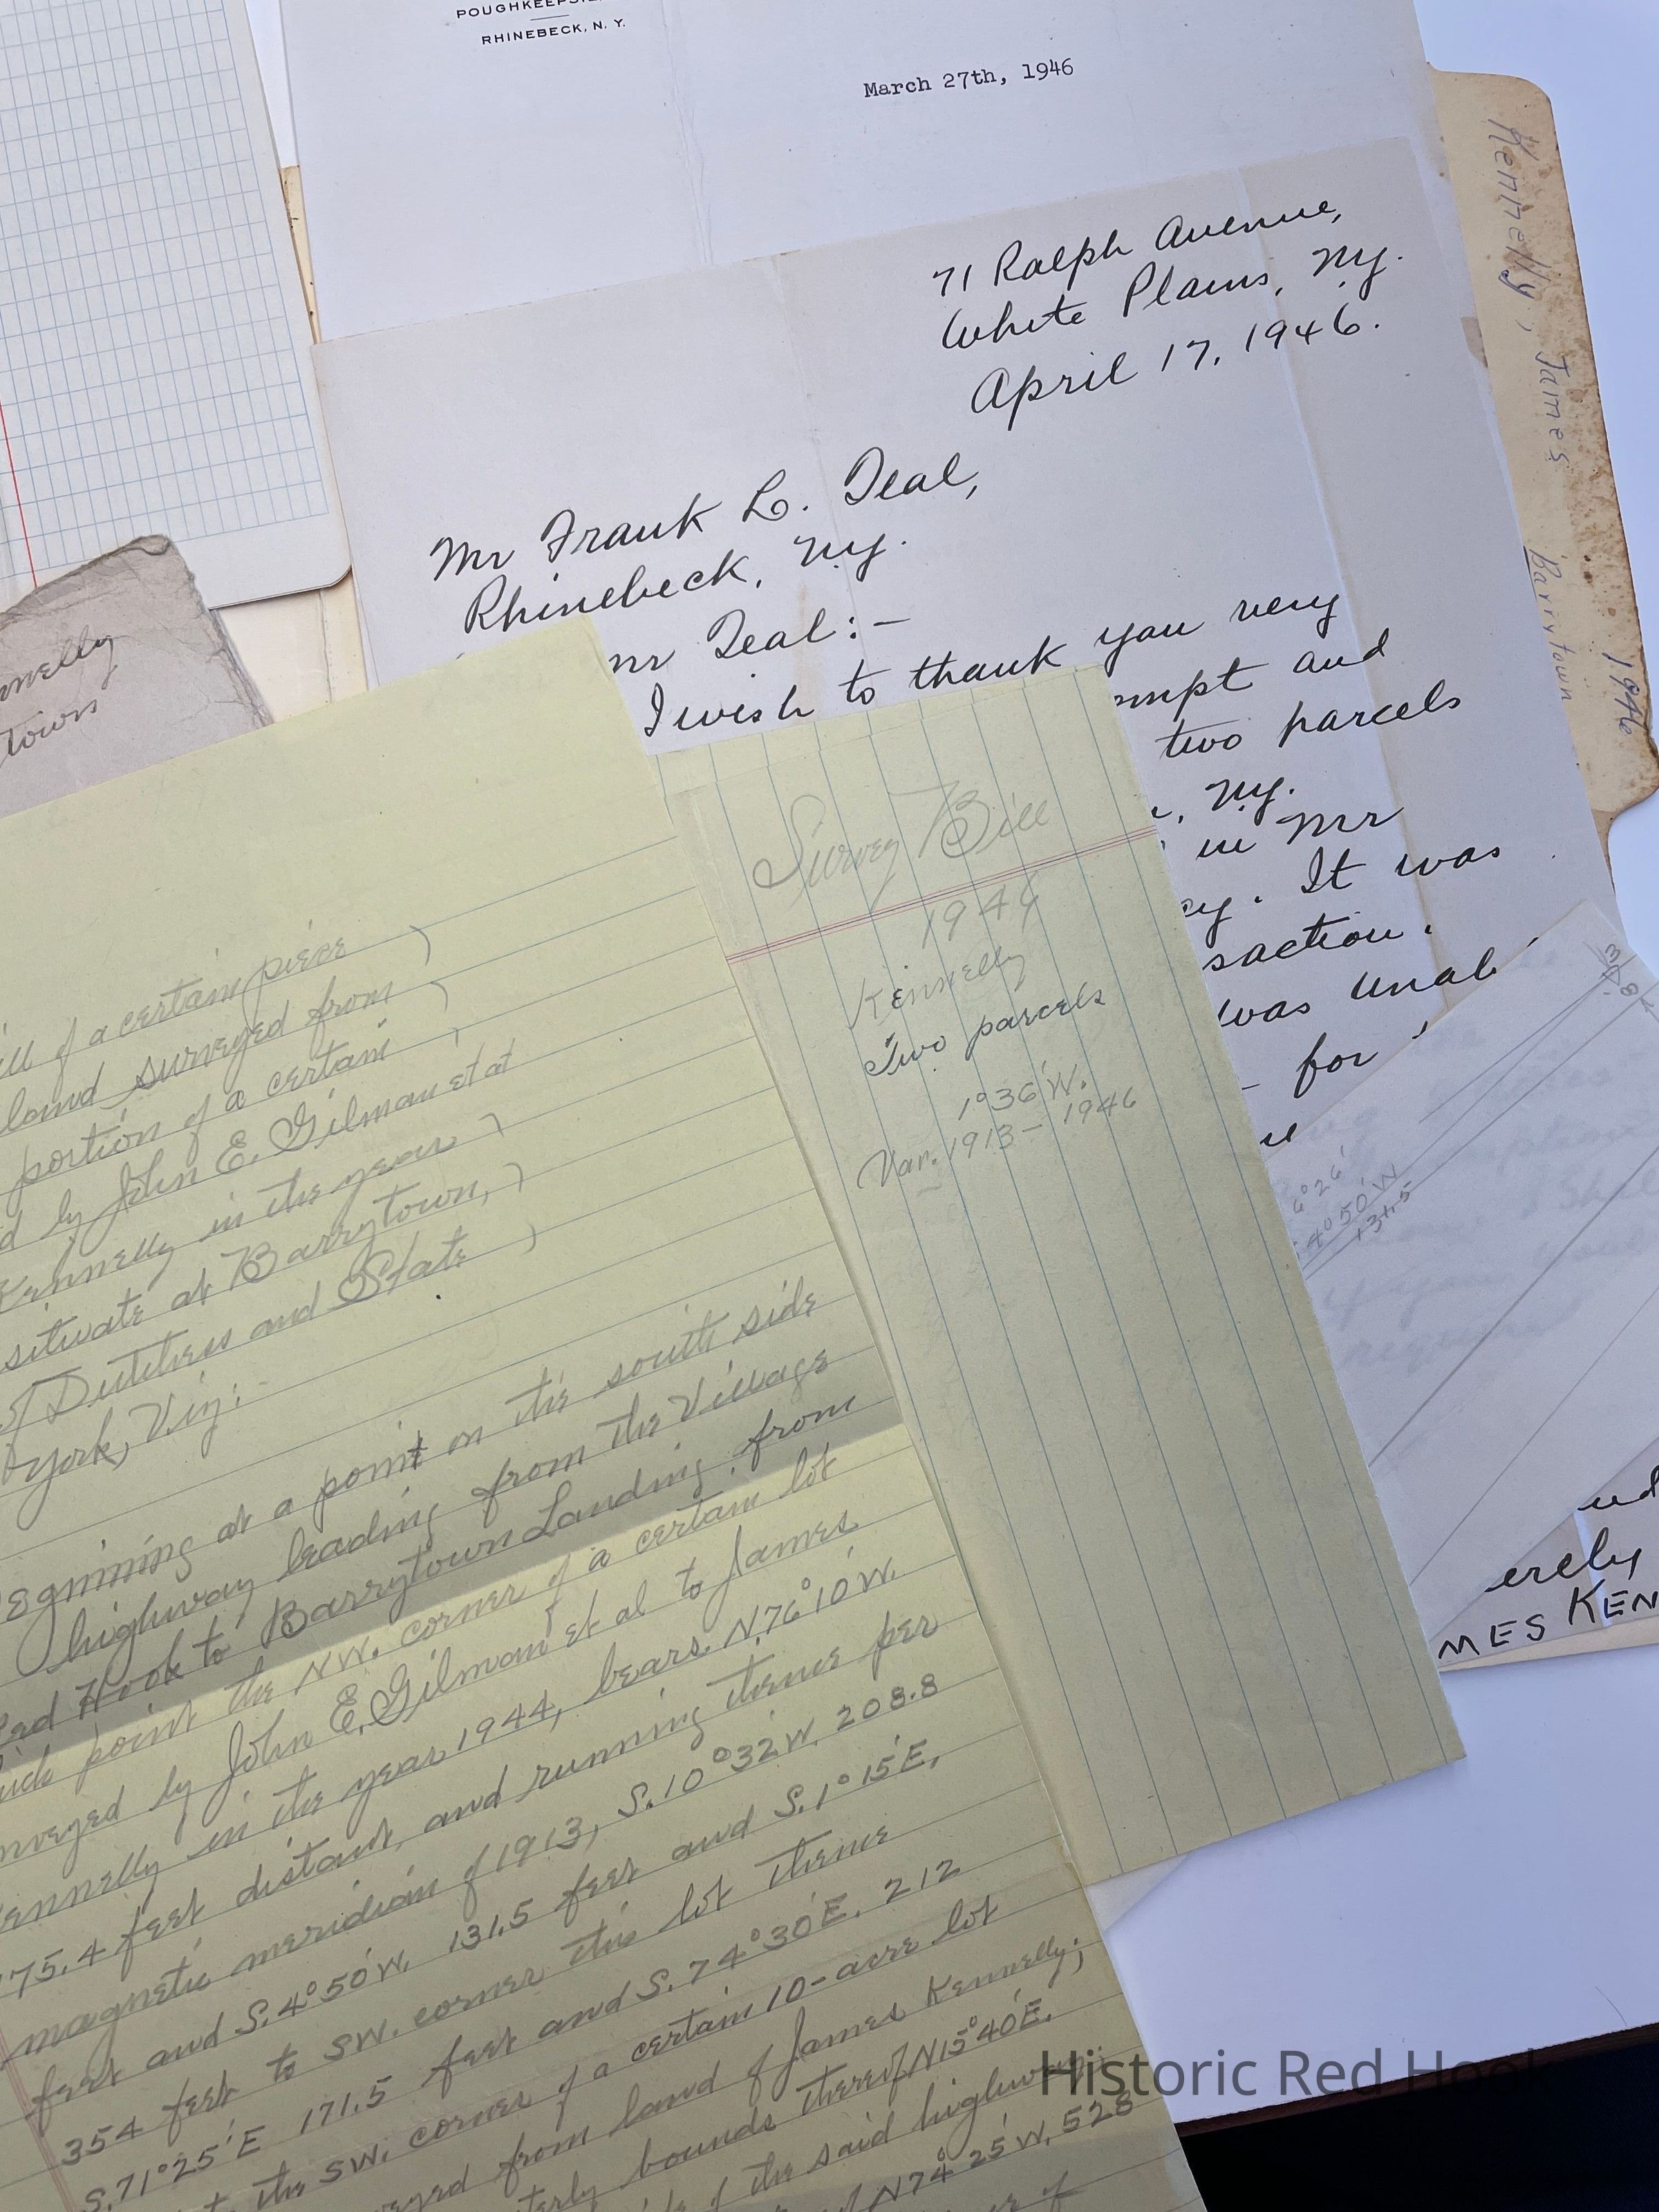 RHINEBECK, N. Y.
March 27th, 1946
Kennelly, James Barrytown 1946
71 Ralph Avenue,
White Plains, Ny.
April 17, 1946.
Mr Frank L. Teal,
Rhinebeck, Ny.
mr Teal:-
I wish to thank you very
and
two parcels
Ny.
in Mr
It was
saction.
was unab
for
town
Survey Bill
Kennelly
Two parcels
1°36'W.
Var. 1913-1946
of a certain piece
land surveyed from
portion of a certain
d by John E. Gilman et al
Kennelly in the year
situate at Barrytown,
of Dutchess and State
York, Viz:-
Beginning at a point on the south side
highway leading from the Village
Red Hook to Barrytown Landing, from
point the NW. corner of a certain lot
nveyed by John E. Gilman et al to James
Kennelly in the year 1944, bears N.76°10'W.
75.4 feet distant, and running thence per
magnetic meridian of 1913, S.10°32'W. 208.8
feet and S.4°50'W. 131.5 feet and S.1°15'E,
354 feet to SW. corner this lot thence
S.71°25'E 171.5 feet and S.74°30'E. 212
the SW. corner of a certain 10-acre lot
eyed from land of James Kennelly;
terly bounds thereof N15°40'E.
of the said highway;
N74°25'W. 528
6°26'
4°50'W
131.5
erely
MES KEN
Historic Red Hook